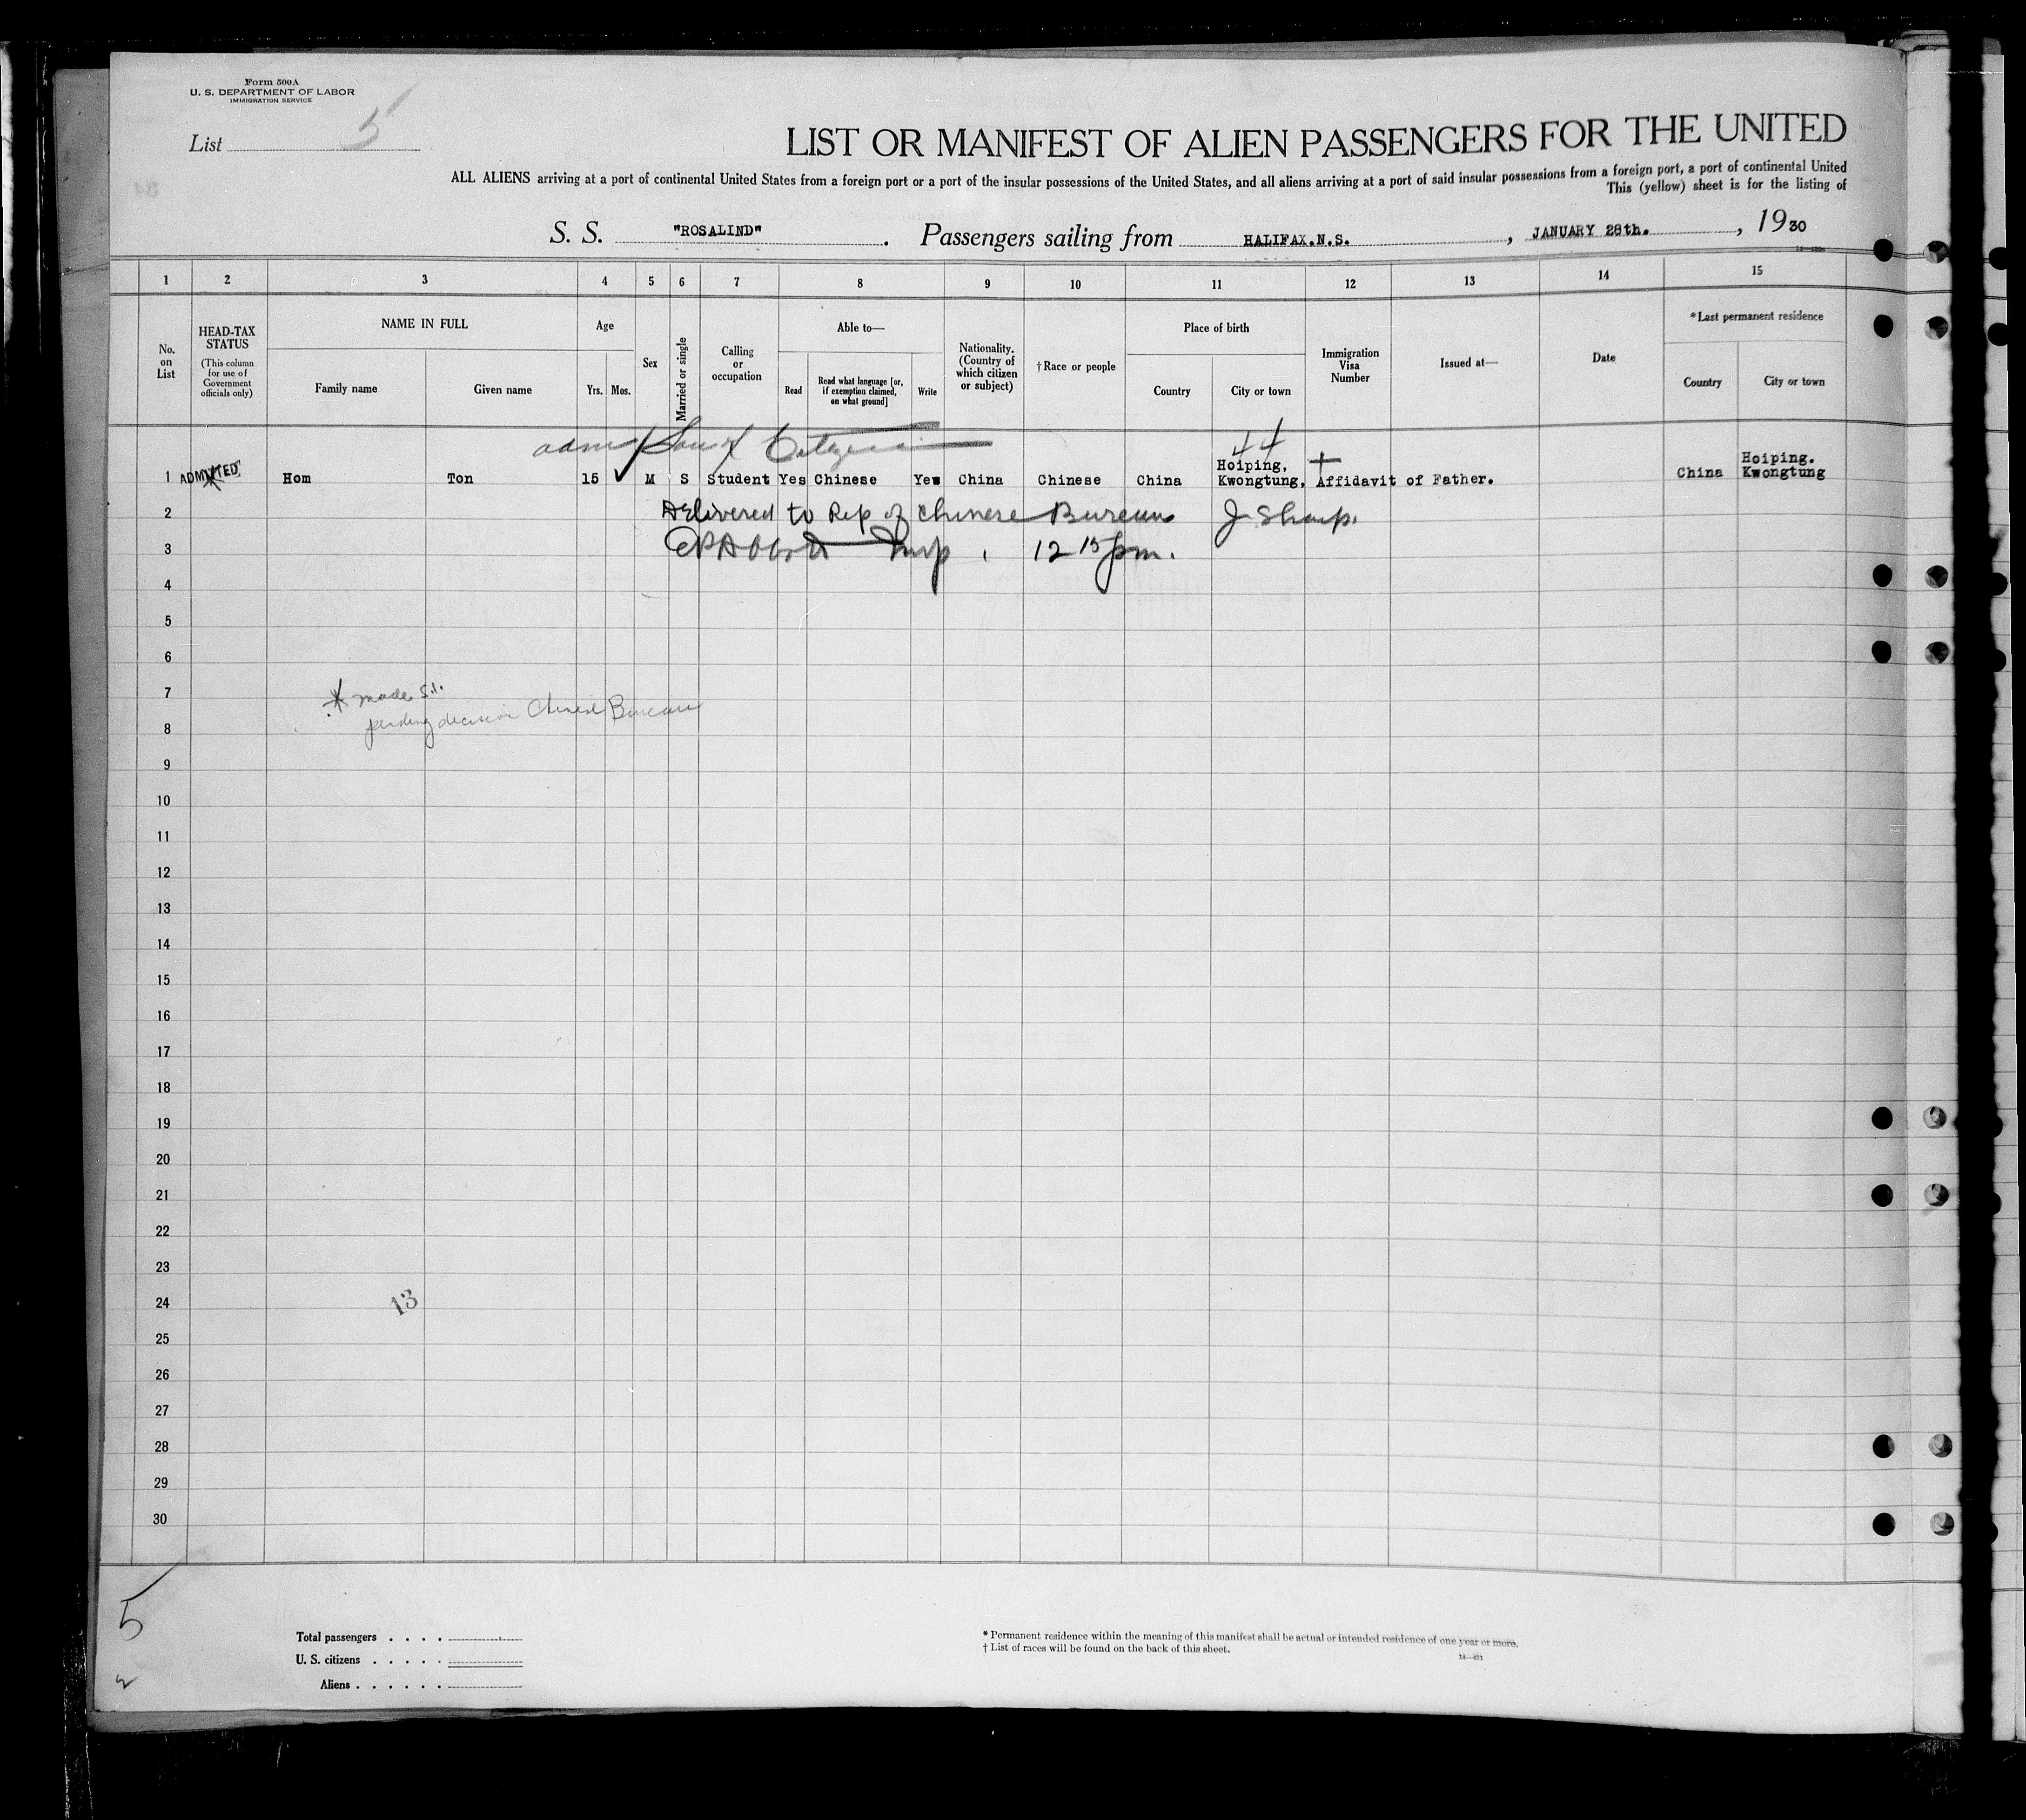 Form 500A
U. S. DEPARTMENT OF LABOR
IMMIGRATION SERVICE
List 5
LIST OR MANIFEST OF ALIEN PASSENGERS FOR THE UNITED
ALL ALIENS arriving at a port of continental United States from a foreign port or a port of the insular possessions of the United States, and all aliens arriving at a port of said insular possessions from a foreign port, a port of continental United
This (yellow) sheet is for the listing of
S. S. "ROSALIND". Passengers sailing from HALIFAX.N.S., JANUARY 28th., 1930
1 2 3 4 5 6 7 8 9 10 11 12 13 14 15
No. on List
HEAD-TAX STATUS
(This column for use of Government officials only)
NAME IN FULL
Family name
Given name
Age
Yrs. Mos.
Sex
Married or single
Calling or occupation
Able to—
Read
Read what language [or, if exemption claimed, on what ground]
Write
Nationality. (Country of which citizen or subject)
†Race or people
Place of birth
Country
City or town
Immigration Visa Number
Issued at—
Date
*Last permanent residence
Country
City or town
adm Son of Citizen
44
1 ADMITTED Hom Ton 15 ✓ M S Student Yes Chinese Yes China Chinese China Hoiping, Kwongtung, Affidavit of Father. China Hoiping. Kwongtung
2 Delivered to Rep of Chinese Bureau J Sharp.
3 Insp 12 15 pm.
4
5
6
7 * made S.I.
8 pending decision Chinese Bureau
9
10
11
12
13
14
15
16
17
18
19
20
21
22
23
24 13
25
26
27
28
29
30
5
2
Total passengers . . . .
U. S. citizens . . . . .
Aliens . . . . . .
* Permanent residence within the meaning of this manifest shall be actual or intended residence of one year or more.
† List of races will be found on the back of this sheet.